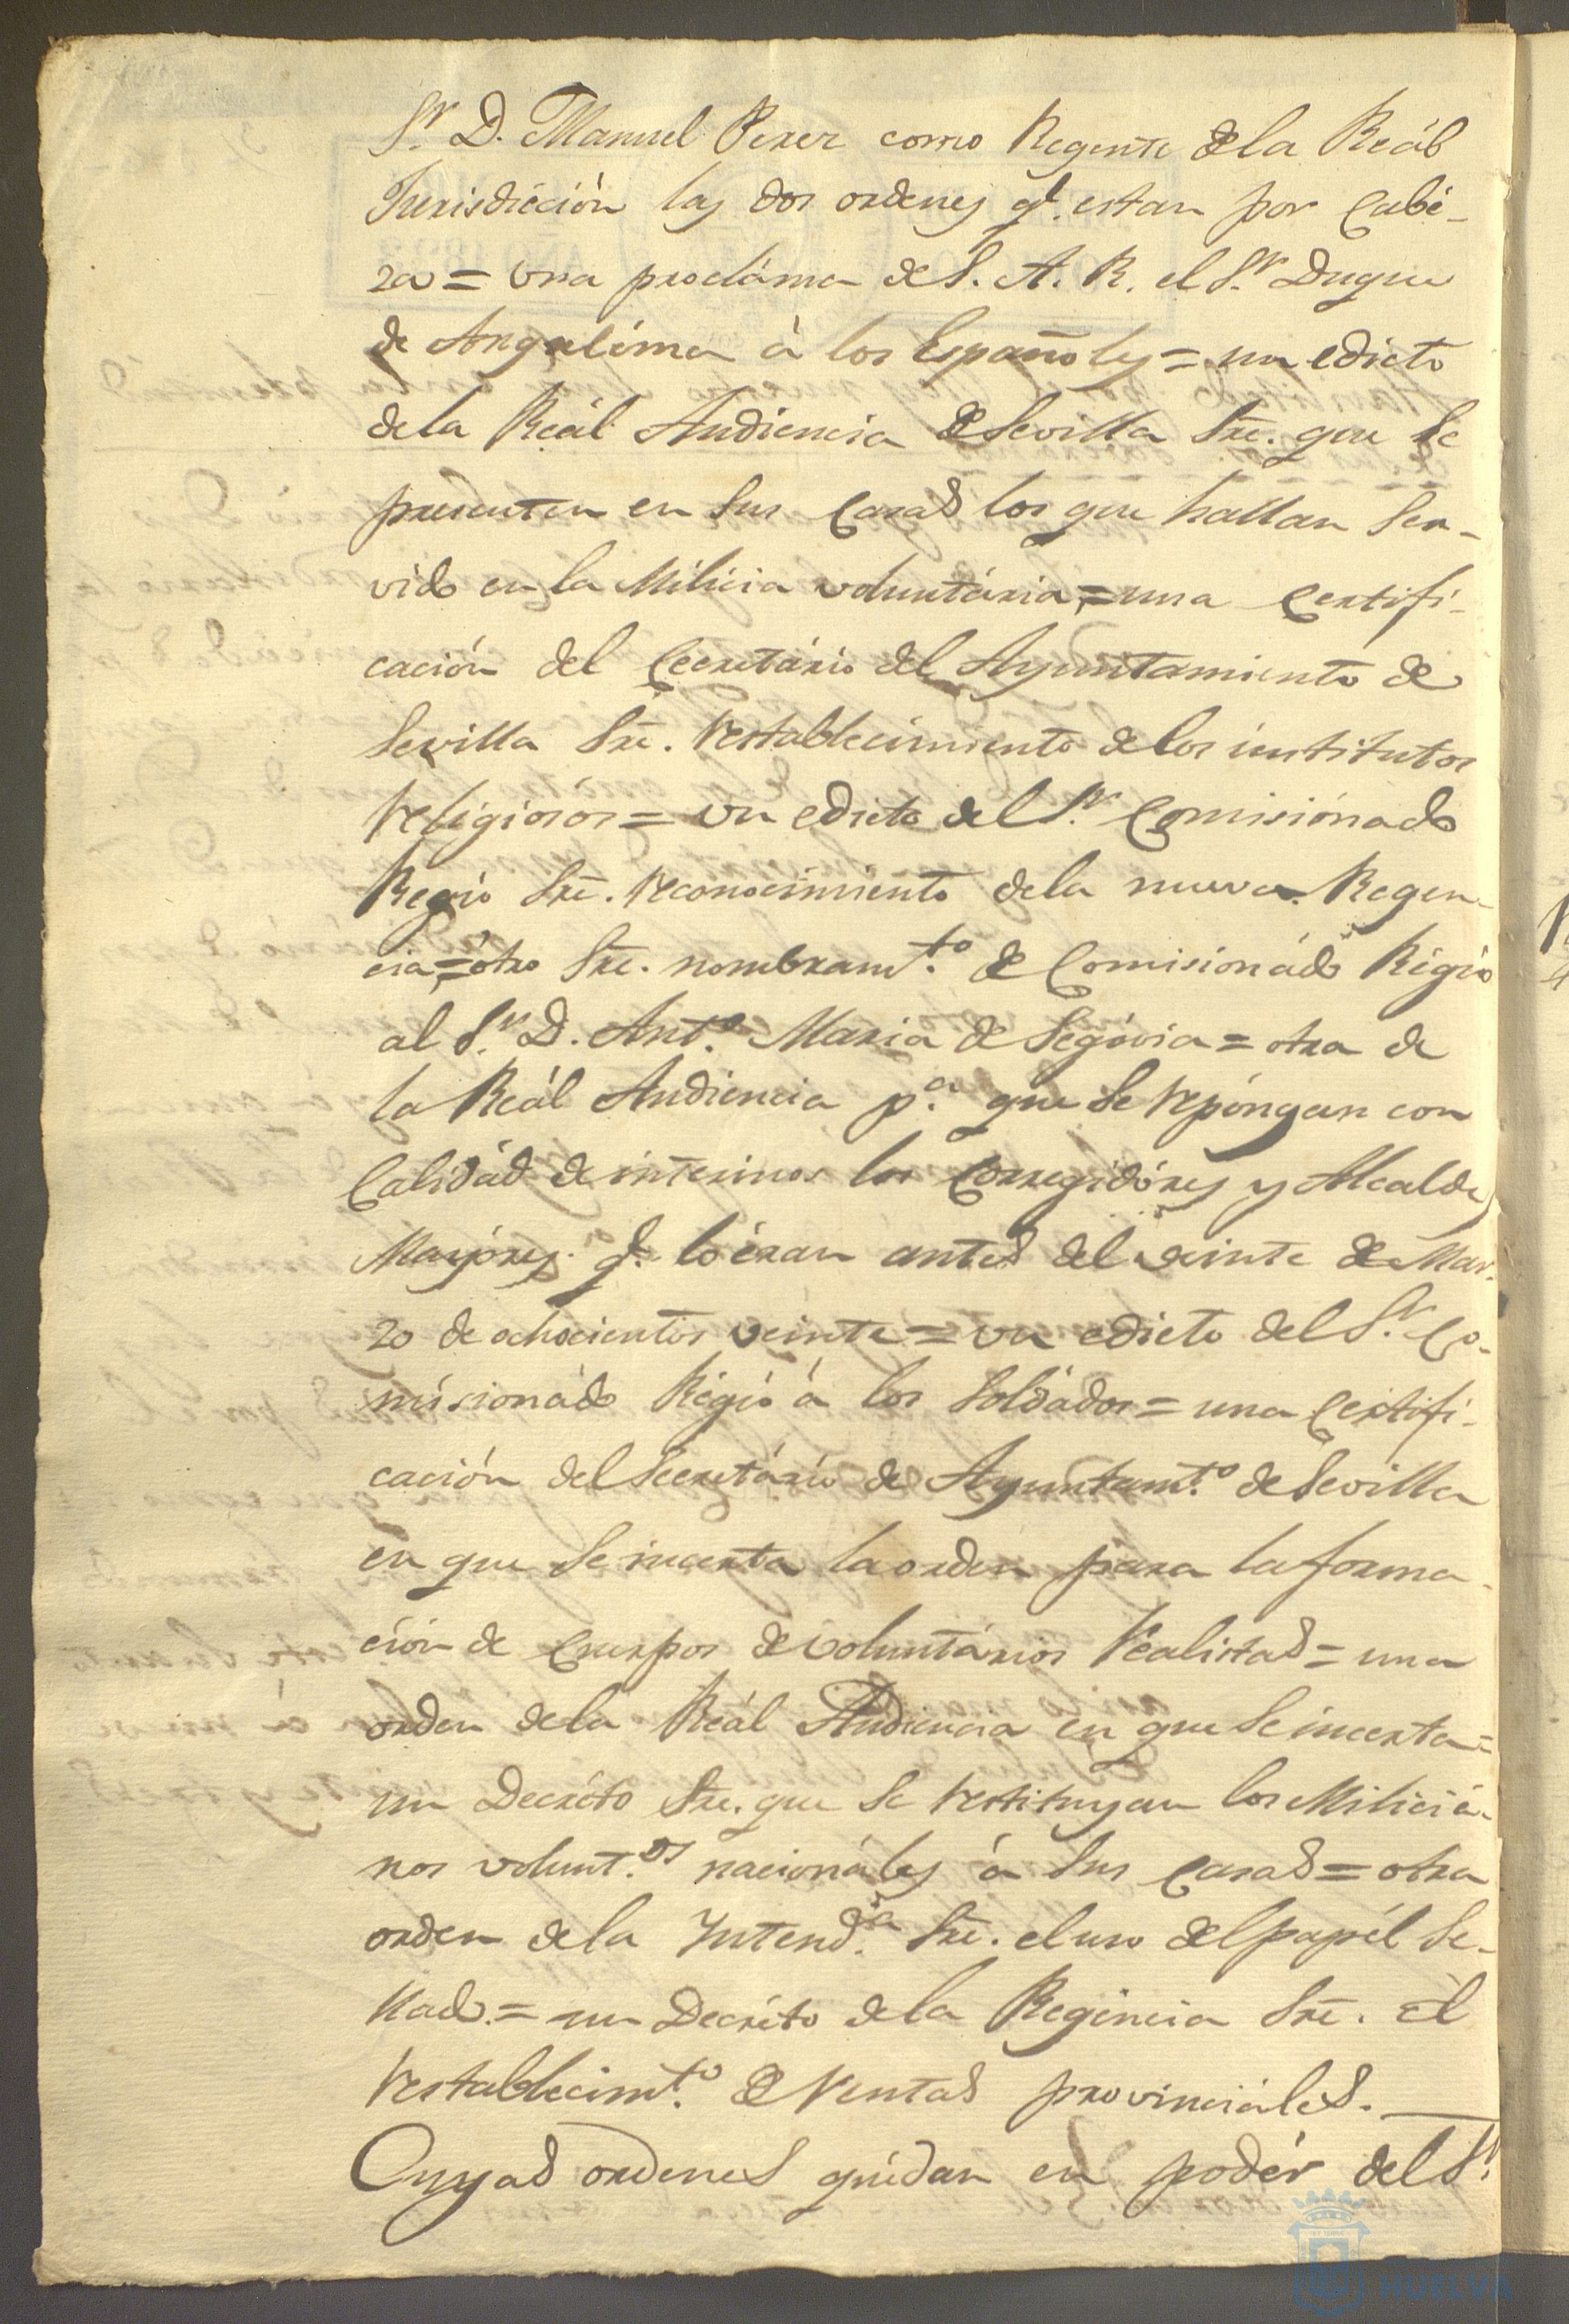 Sr. D. Manuel Perez como Regente de la Reál
Jurisdicción las dos ordenes qe. estan por Cabé-
za = Una procláma de S. A. R. el Sr. Duque
de Anguléma à los Españoles = un edicto
dela Reál Audiencia de Sevilla Sre. que se
presenten en sus Casas los que hallan Ser-
vido en la Milicia voluntária = una Certifi-
cación del Secretário del Ayuntamiento de
Sevilla Sre. restablecimiento de los institutos
religiósos = Un edicto del Sr. Comisiónado
Regio Sre. reconocimiento dela nueva Regen-
cia = ótro Sre. nombramto. de Comisionádo Régio
al Sr. D. Anto. Maria de Segóvia = otra de
la Reál Audiencia pa. que se repóngan con
Calidád de interinos los Corregidóres y Alcaldes
Mayóres qe. lo éran antes del veinte de Mar-
zo de ochocientos veinte = un edicto del Sr. Co-
misionádo Régio á los Soldádos = una Certifi-
cación del Secretário de Ayuntamto. de Sevilla
en que se incerta la orden para la forma-
ción de Cuerpos de Voluntários Realistas = una
orden dela Reál Audiencia en que se incerta =
un Decréto Sre. que se restituyan los Miliciá-
nos volunt.os nacionáles á sus Casas = otra
orden dela Intenda. Sre. el uso del papél Se-
llado = un Decréto dela Regéncia Sre. él
restablecimto. de Rentas provinciáles.
Cuyas ordenes quédan en podér del Sr.
HUELVA